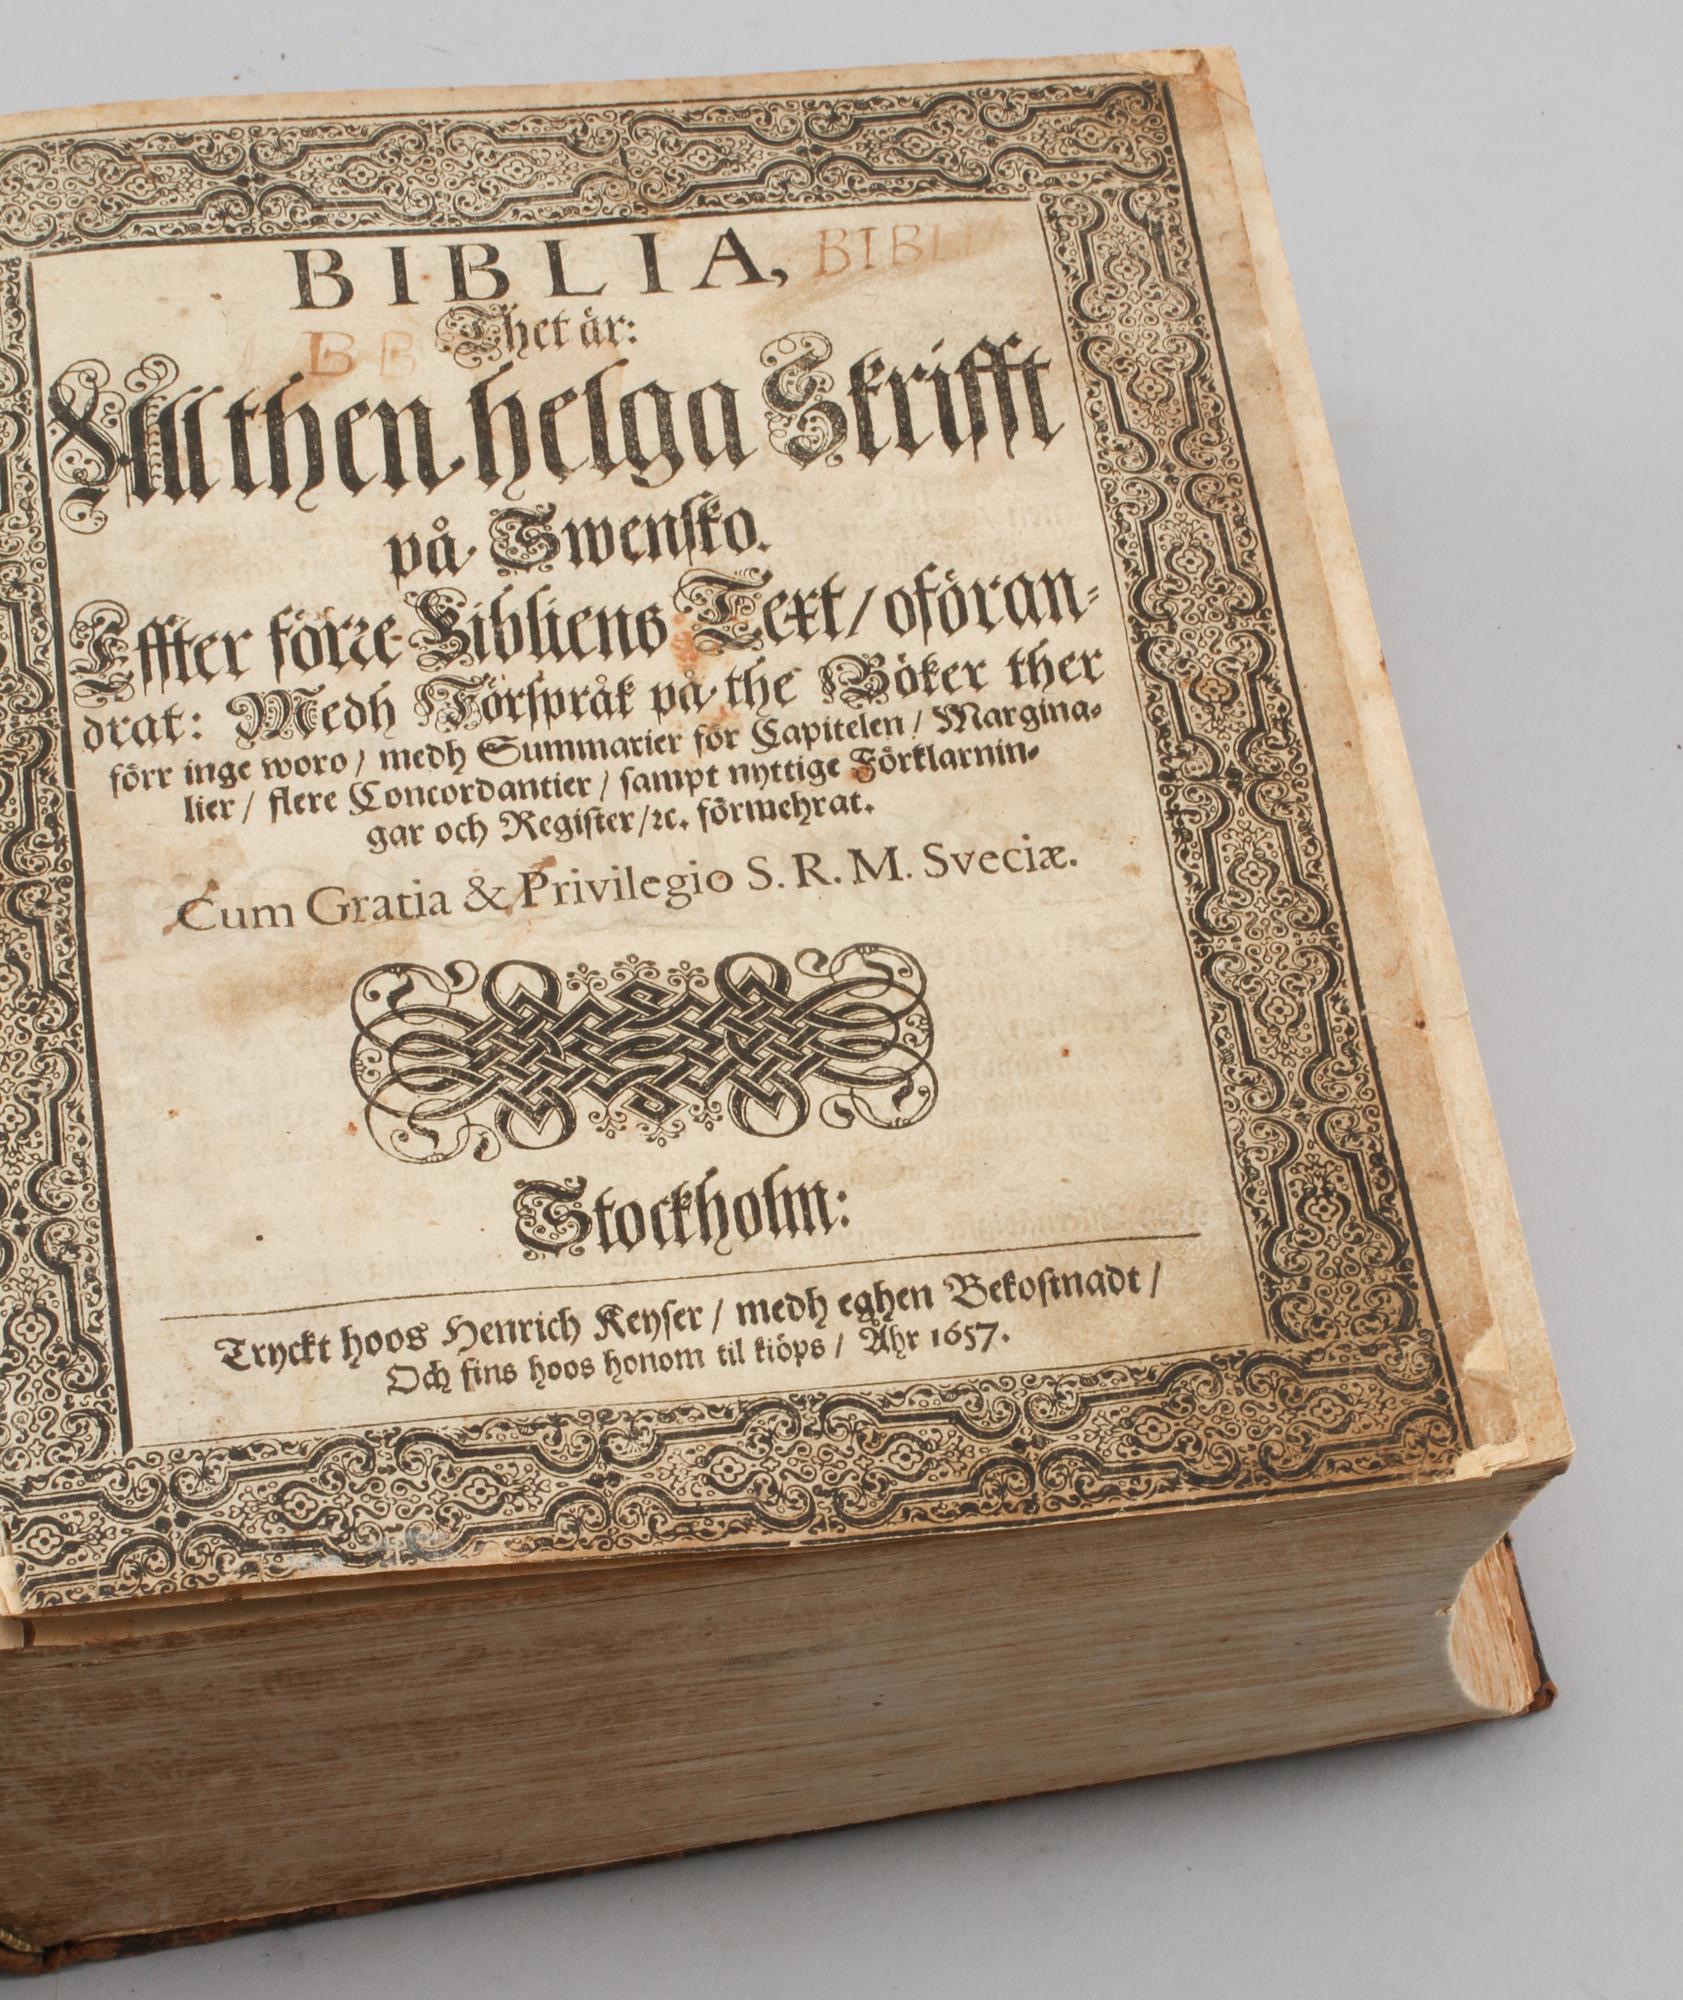 BIBLIA, BIBLIA
Thet är:
B B
All then helga Skrifft
på Swensko.
Effter förre Bibliens Text/ oföran-
drat: Medh Förspråk på the Böker ther
förr inge woro/ medh Summarier för Capitelen/ Margina-
lier/ flere Concordantier/ sampt nyttige Förklarnin-
gar och Register/ꝛc. förmehrat.
Cum Gratia & Privilegio S. R. M. Sveciæ.
Stockholm:
Tryckt hoos Henrich Keyser/ medh eghen Bekostnadt/
Och fins hoos honom til kiöps/ Åhr 1657.